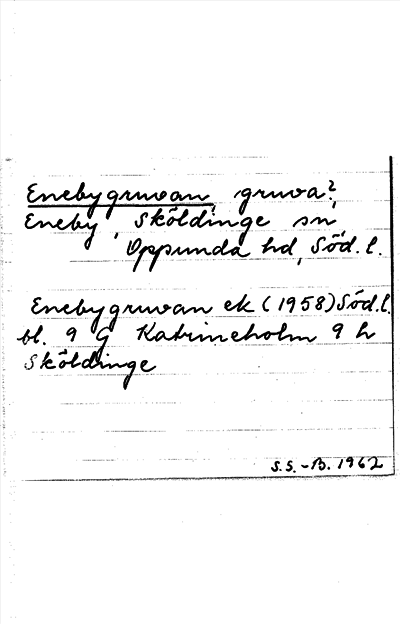 Enebygruvan, gruva?,
Eneby, Sköldinge sn,
Oppunda hd, Söd. l.
Enebygruvan ek (1958) Söd. l.
bl. 9 G Katrineholm 9 h
Sköldinge
S.S.-B. 1962